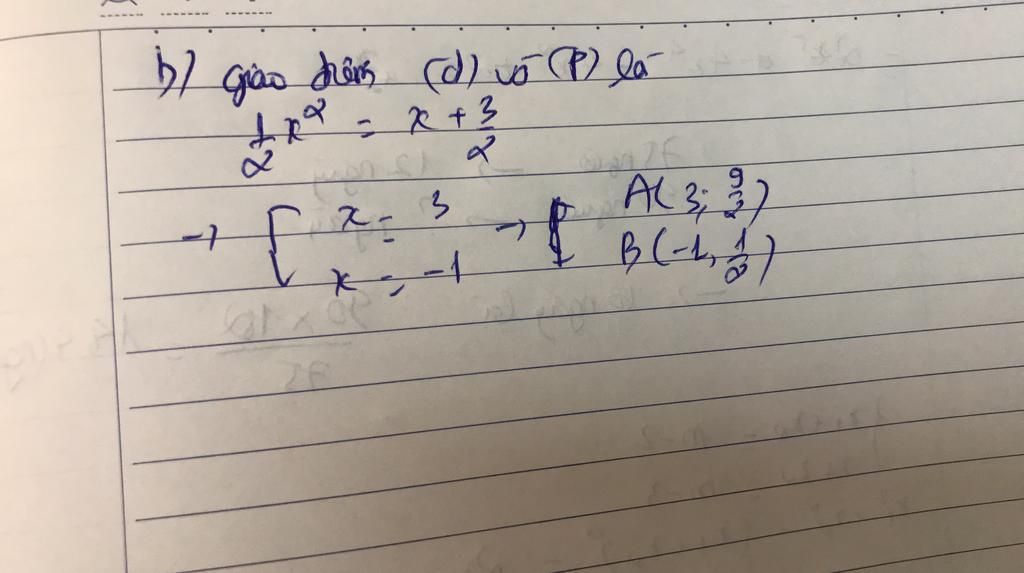 b) Giao điểm (d) và (P) là
1/2 x² = x + 3/2
→ [ x = 3 → [ A(3; 9/2)
x = -1 B(-1, 1/2)